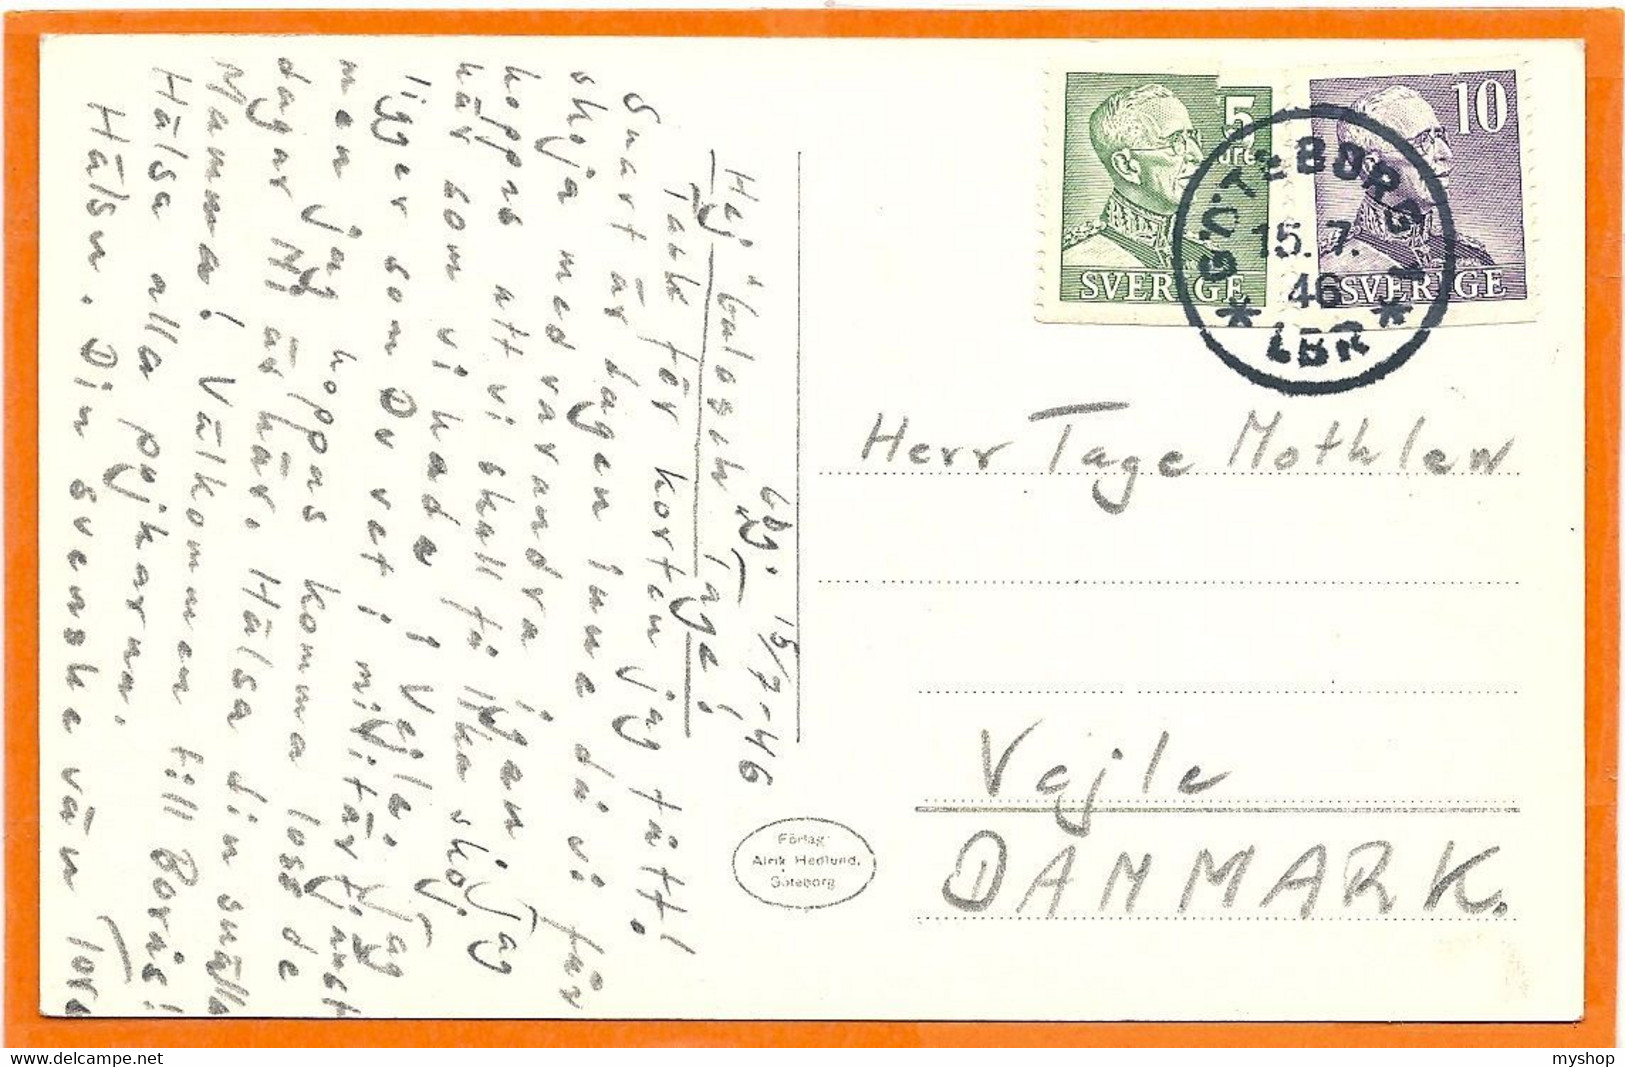 Gbg. 15/7-46
Hej
Tage!
Tack för korten jag fått!
Snart är dagen inne då vi får
skoja med varandra igen. Jag
hoppas att vi skall få lika skoj
här som vi hade i Vejle. Jag
ligger som Du vet i militärtjänst
men jag hoppas komma loss de
dagar Ni är här. Hälsa din snälla
Mamma! Välkommen till Borås!
Hälsa alla pojkarna.
Hälsn. Din svenske vän
5
öre
SVERIGE
10
SVERIGE
GÖTEBORG 1
15. 7.
46
* LBR *
Herr Tage Mothlew
Vejle
DANMARK.
Förlag:
Alrik Hedlund,
Göteborg
myshop